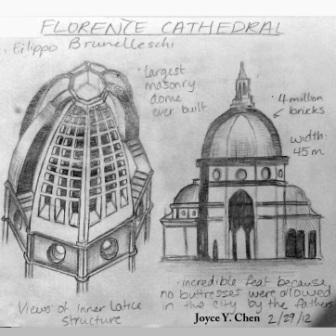 FLORENCE CATHEDRAL
. Filippo Brunelleschi
· largest
masonry
dome
ever built
· 4 million
bricks
width
45 m
Views of inner latice
structure
· incredible feat because
no buttresses were allowed
in the city by the fathers
Joyce Y. Chen 2/29/12